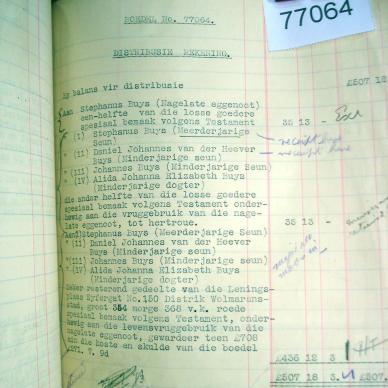 BOEDEL No. 77064.
77064
DISTRIBUSIE REKENING.
£507 18
By balans vir distribusie
Aan Stephanus Buys (Nagelate eggenoot)
een-helfte van die losse goedere
spesiaal bemaak volgens Testament 35 13 -
" (i) Stephanus Buys (Meerderjarige
Seun)
" (ii) Daniel Johannes van der Heever
Buys (Minderjarige seun)
" (iii) Johannes Buys (Minderjarige Seun)
" (iv) Alida Johanna Elizabeth Buys
(Minderjarige dogter)
die ander helfte van die losse goedere
spesiaal bemaak volgens Testament onder-
hewig aan die vruggebruik van die nage-
late eggenoot, tot hertroue. 35 13 -
Stephanus Buys (Meerderjarige Seun)
" (ii) Daniel Johannes van der Heever
Buys (Minderjarige seun)
" (iii) Johannes Buys (Minderjarige Seun)
" (iv) Alida Johanna Elizabeth Buys
(Minderjarige dogter)
Seker resterend gedeelte van die Lenings-
plaas Syfergat No.150 Distrik Wolmarans-
stad, groot 354 morge 368 v.k. roede
spesiaal bemaak volgens Testament, onder-
hewig aan die lewensvruggebruik van die
nagelate eggenoot, gewardeer teen £708
min die koste en skulde van die boedel
£271. 7. 9d
£436 12 3
£507 18 3. £507.